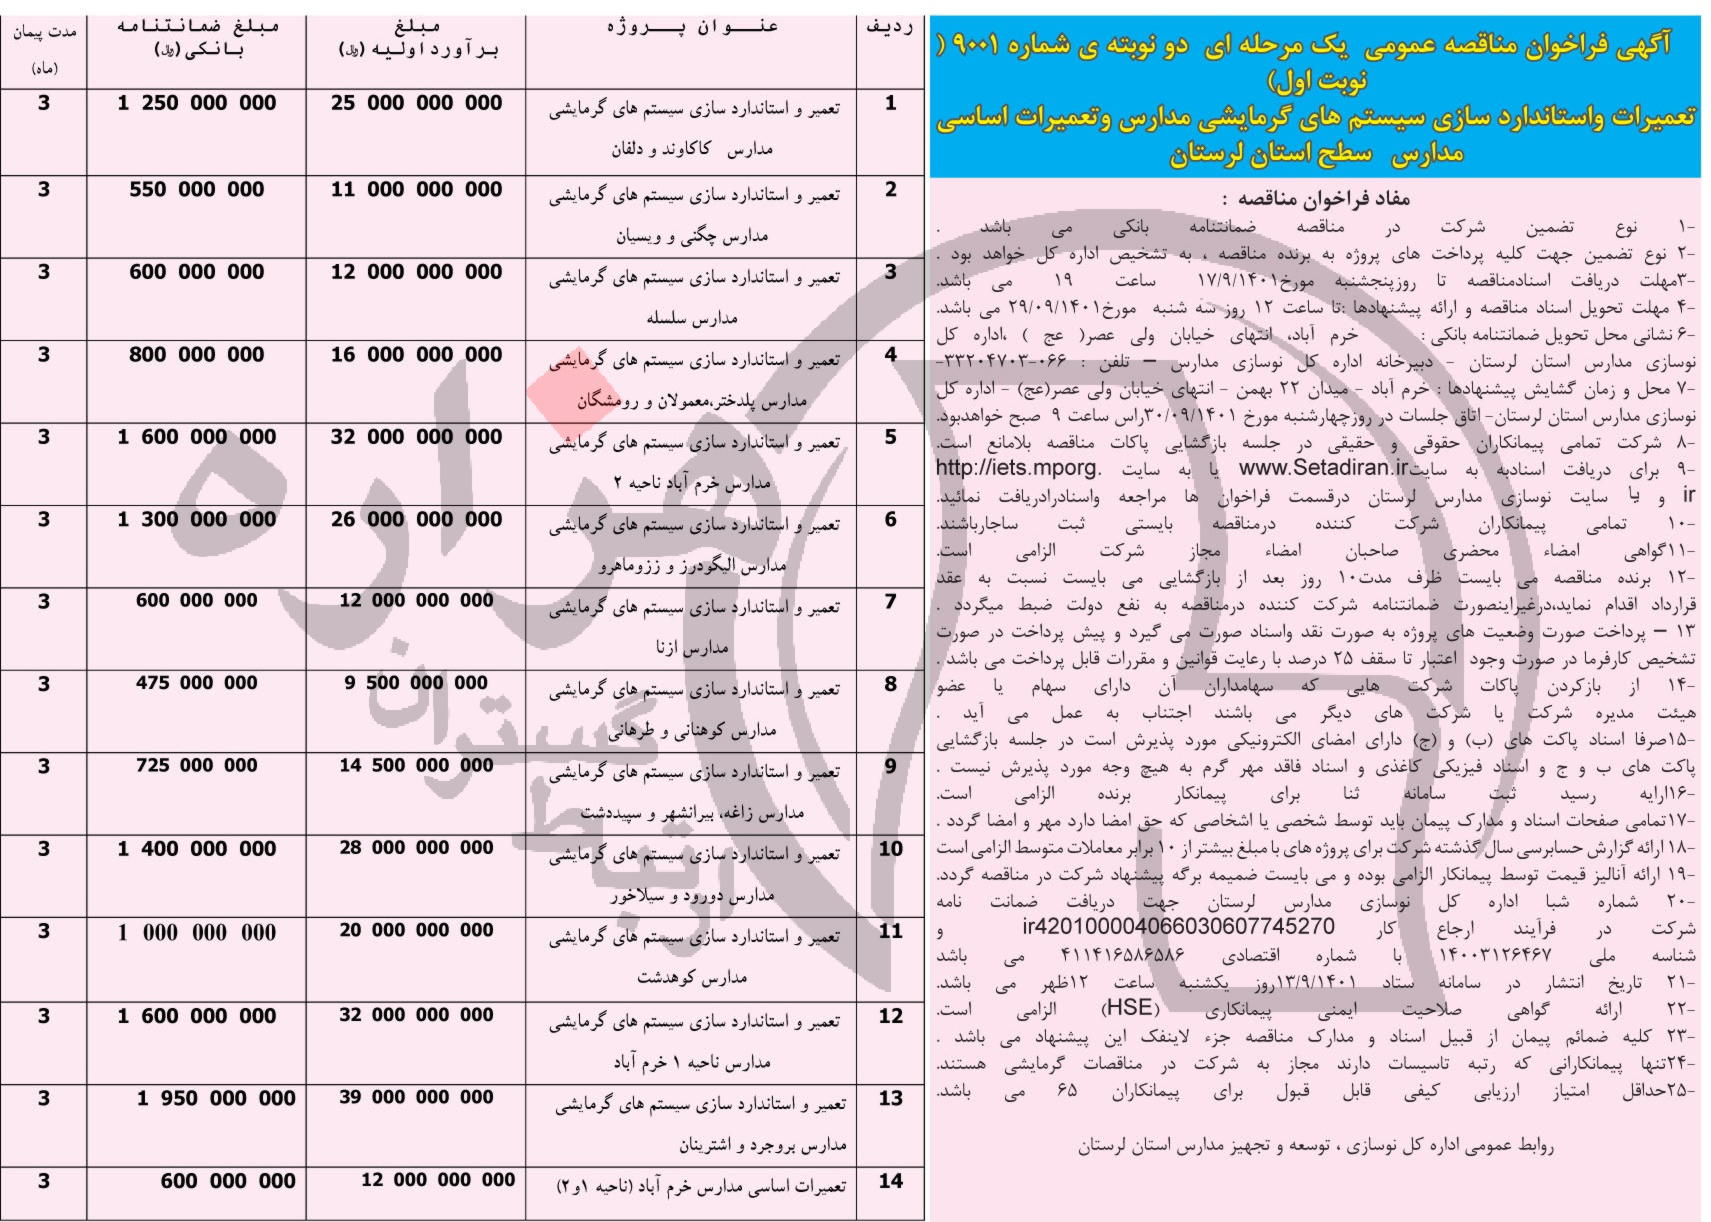 آگهی فراخوان مناقصه عمومی یک مرحله ای دو نوبته ی شماره ۹۰۰۱ (
نوبت اول)
تعمیرات واستاندارد سازی سیستم های گرمایشی مدارس وتعمیرات اساسی
مدارس سطح استان لرستان
مفاد فراخوان مناقصه :
۱- نوع تضمین شرکت در مناقصه ضمانتنامه بانکی می باشد .
۲- نوع تضمین جهت کلیه پرداخت های پروژه به برنده مناقصه ، به تشخیص اداره کل خواهد بود .
۳-مهلت دریافت اسنادمناقصه تا روزپنجشنبه مورخ۱۷/۹/۱۴۰۱ ساعت ۱۹ می باشد.
۴- مهلت تحویل اسناد مناقصه و ارائه پیشنهادها :تا ساعت ۱۲ روز سه شنبه مورخ۲۹/۰۹/۱۴۰۱ می باشد.
۶-نشانی محل تحویل ضمانتنامه بانکی : خرم آباد، انتهای خیابان ولی عصر( عج ) ،اداره کل
نوسازی مدارس استان لرستان - دبیرخانه اداره کل نوسازی مدارس – تلفن : ۰۶۶-۳۳۲۰۴۷۰۳-
۷- محل و زمان گشایش پیشنهادها : خرم آباد - میدان ۲۲ بهمن - انتهای خیابان ولی عصر(عج) - اداره کل
نوسازی مدارس استان لرستان- اتاق جلسات در روزچهارشنبه مورخ ۳۰/۰۹/۱۴۰۱راس ساعت ۹ صبح خواهدبود.
۸- شرکت تمامی پیمانکاران حقوقی و حقیقی در جلسه بازگشایی پاکات مناقصه بلامانع است.
۹- برای دریافت اسنادبه به سایتwww.Setadiran.ir یا به سایت http://iets.mporg.
ir و یا سایت نوسازی مدارس لرستان درقسمت فراخوان ها مراجعه واسنادرادریافت نمائید.
۱۰- تمامی پیمانکاران شرکت کننده درمناقصه بایستی ثبت ساجارباشند.
۱۱-گواهی امضاء محضری صاحبان امضاء مجاز شرکت الزامی است.
۱۲- برنده مناقصه می بایست ظرف مدت۱۰ روز بعد از بازگشایی می بایست نسبت به عقد
قرارداد اقدام نماید،درغیراینصورت ضمانتنامه شرکت کننده درمناقصه به نفع دولت ضبط میگردد .
۱۳ – پرداخت صورت وضعیت های پروژه به صورت نقد واسناد صورت می گیرد و پیش پرداخت در صورت
تشخیص کارفرما در صورت وجود اعتبار تا سقف ۲۵ درصد با رعایت قوانین و مقررات قابل پرداخت می باشد .
۱۴- از بازکردن پاکات شرکت هایی که سهامداران آن دارای سهام یا عضو
هیئت مدیره شرکت یا شرکت های دیگر می باشند اجتناب به عمل می آید .
۱۵-صرفا اسناد پاکت های (ب) و (ج) دارای امضای الکترونیکی مورد پذیرش است در جلسه بازگشایی
پاکت های ب و ج و اسناد فیزیکی کاغذی و اسناد فاقد مهر گرم به هیچ وجه مورد پذیرش نیست .
۱۶-ارایه رسید ثبت سامانه ثنا برای پیمانکار برنده الزامی است.
۱۷-تمامی صفحات اسناد و مدارک پیمان باید توسط شخصی یا اشخاصی که حق امضا دارد مهر و امضا گردد .
۱۸-ارائه گزارش حسابرسی سال گذشته شرکت برای پروژه های با مبلغ بیشتر از ۱۰ برابر معاملات متوسط الزامی است
۱۹- ارائه آنالیز قیمت توسط پیمانکار الزامی بوده و می بایست ضمیمه برگه پیشنهاد شرکت در مناقصه گردد.
۲۰- شماره شبا اداره کل نوسازی مدارس لرستان جهت دریافت ضمانت نامه
شرکت در فرآیند ارجاع کار ir420100004066030607745270 و
شناسه ملی ۱۴۰۰۳۱۲۶۴۶۷ با شماره اقتصادی ۴۱۱۴۱۶۵۸۶۵۸۶ می باشد
۲۱- تاریخ انتشار در سامانه ستاد ۱۳/۹/۱۴۰۱روز یکشنبه ساعت ۱۲ظهر می باشد.
۲۲- ارائه گواهی صلاحیت ایمنی پیمانکاری (HSE) الزامی است.
۲۳- کلیه ضمائم پیمان از قبیل اسناد و مدارک مناقصه جزء لاینفک این پیشنهاد می باشد .
۲۴-تنها پیمانکارانی که رتبه تاسیسات دارند مجاز به شرکت در مناقصات گرمایشی هستند.
۲۵-حداقل امتیاز ارزیابی کیفی قابل قبول برای پیمانکاران ۶۵ می باشد.
روابط عمومی اداره کل نوسازی ، توسعه و تجهیز مدارس استان لرستان
ردیف عنوان پروژه مبلغ برآورد اولیه (ریال) مبلغ ضمانتنامه بانکی (ریال) مدت پیمان (ماه)
1 تعمیر و استاندارد سازی سیستم های گرمایشی 25 000 000 000 1 250 000 000 3
مدارس کاکاوند و دلفان
2 تعمیر و استاندارد سازی سیستم های گرمایشی 11 000 000 000 550 000 000 3
مدارس چگنی و ویسیان
3 تعمیر و استاندارد سازی سیستم های گرمایشی 12 000 000 000 600 000 000 3
مدارس سلسله
4 تعمیر و استاندارد سازی سیستم های گرمایشی 16 000 000 000 800 000 000 3
مدارس پلدختر،معمولان و رومشگان
5 تعمیر و استاندارد سازی سیستم های گرمایشی 32 000 000 000 1 600 000 000 3
مدارس خرم آباد ناحیه ۲
6 تعمیر و استاندارد سازی سیستم های گرمایشی 26 000 000 000 1 300 000 000 3
مدارس الیگودرز و ززوماهرو
7 تعمیر و استاندارد سازی سیستم های گرمایشی 12 000 000 000 600 000 000 3
مدارس ازنا
8 تعمیر و استاندارد سازی سیستم های گرمایشی 9 500 000 000 475 000 000 3
مدارس کوهنانی و طرهانی
9 تعمیر و استاندارد سازی سیستم های گرمایشی 14 500 000 000 725 000 000 3
مدارس زاغه، بیرانشهر و سپیددشت
10 تعمیر و استاندارد سازی سیستم های گرمایشی 28 000 000 000 1 400 000 000 3
مدارس دورود و سیلاخور
11 تعمیر و استاندارد سازی سیستم های گرمایشی 20 000 000 000 1 000 000 000 3
مدارس کوهدشت
12 تعمیر و استاندارد سازی سیستم های گرمایشی 32 000 000 000 1 600 000 000 3
مدارس ناحیه ۱ خرم آباد
13 تعمیر و استاندارد سازی سیستم های گرمایشی 39 000 000 000 1 950 000 000 3
مدارس بروجرد و اشترینان
14 تعمیرات اساسی مدارس خرم آباد (ناحیه ۱و۲) 12 000 000 000 600 000 000 3
هزاره
گستران
ارتباط